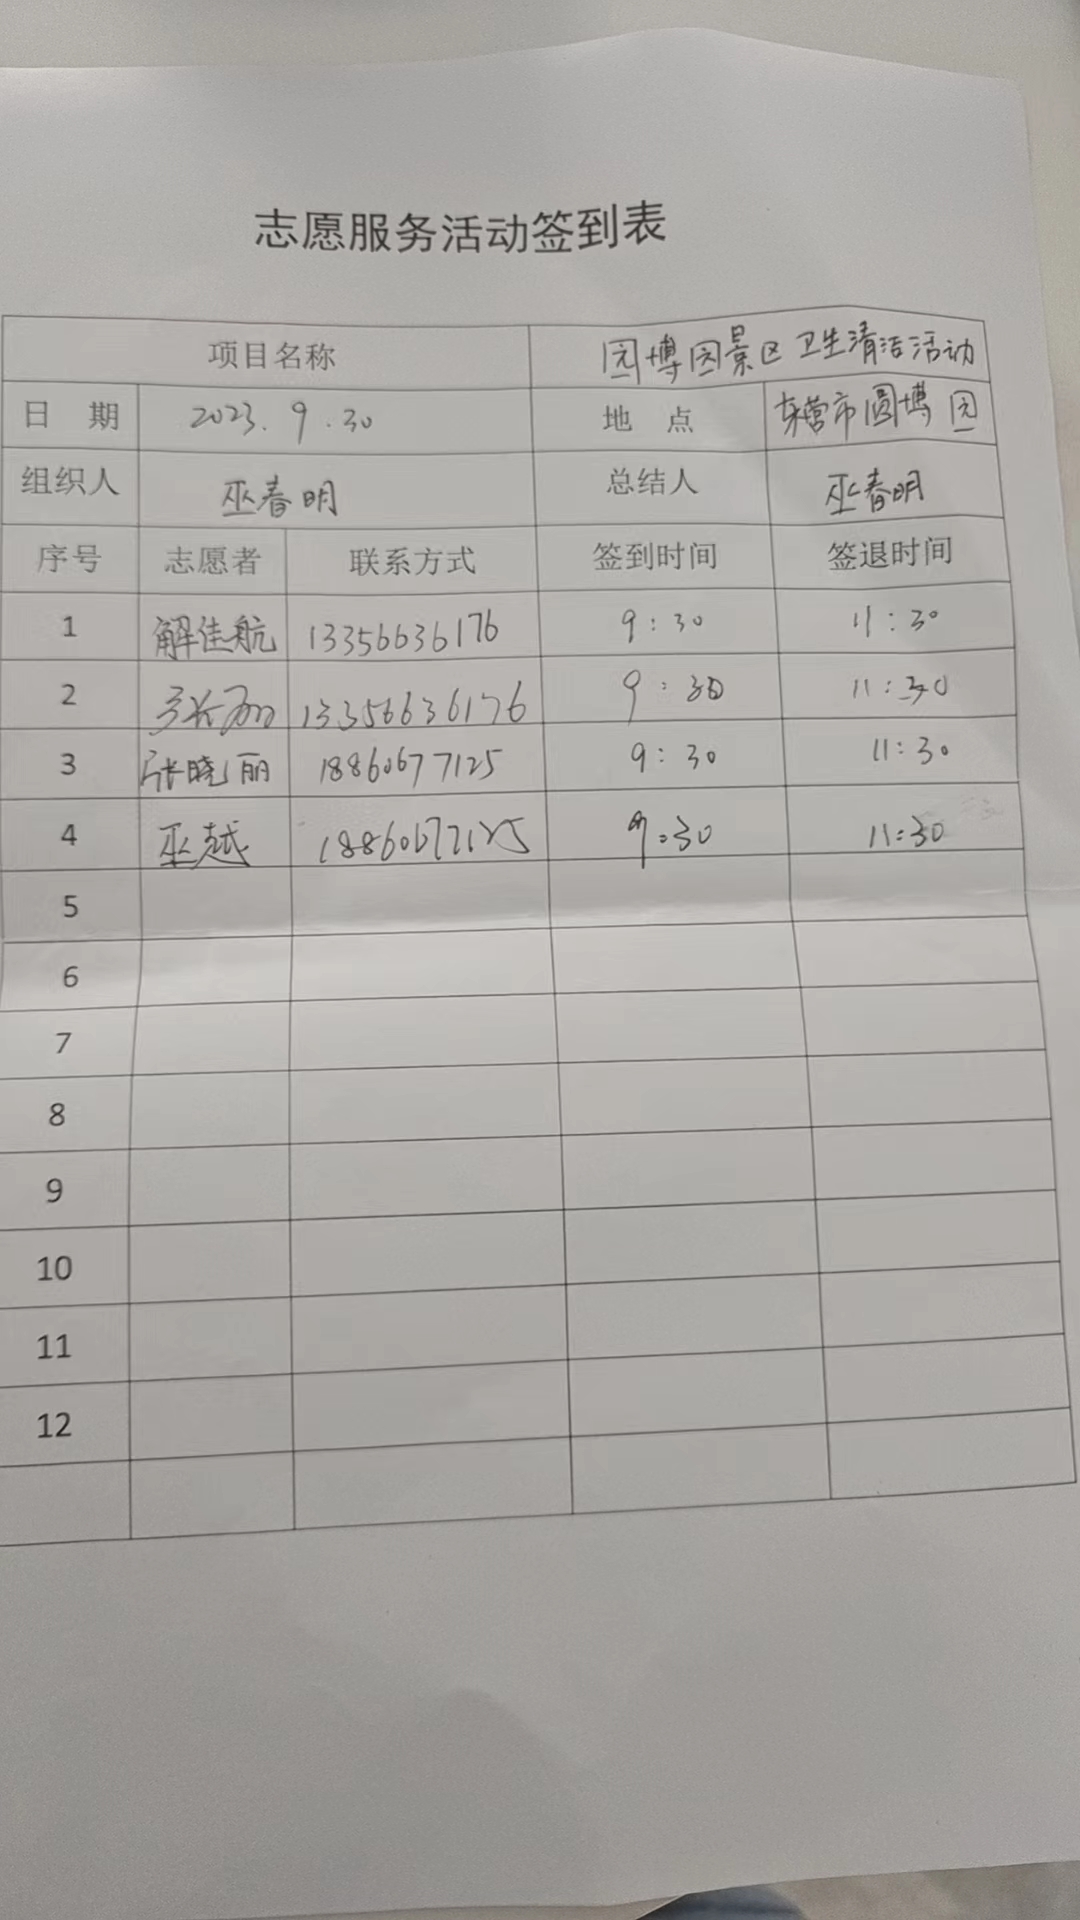 志愿服务活动签到表
项目名称 园博园景区卫生清洁活动
日 期 2023.9.30 地 点 东营市圆博园
组织人 巫春明 总结人 巫春明
序号 志愿者 联系方式 签到时间 签退时间
1 解佳航 13356636176 9:30 11:30
2 13356636176 9:30 11:30
3 张晓丽 18860677125 9:30 11:30
4 巫越 18860677125 9:30 11:30
5
6
7
8
9
10
11
12